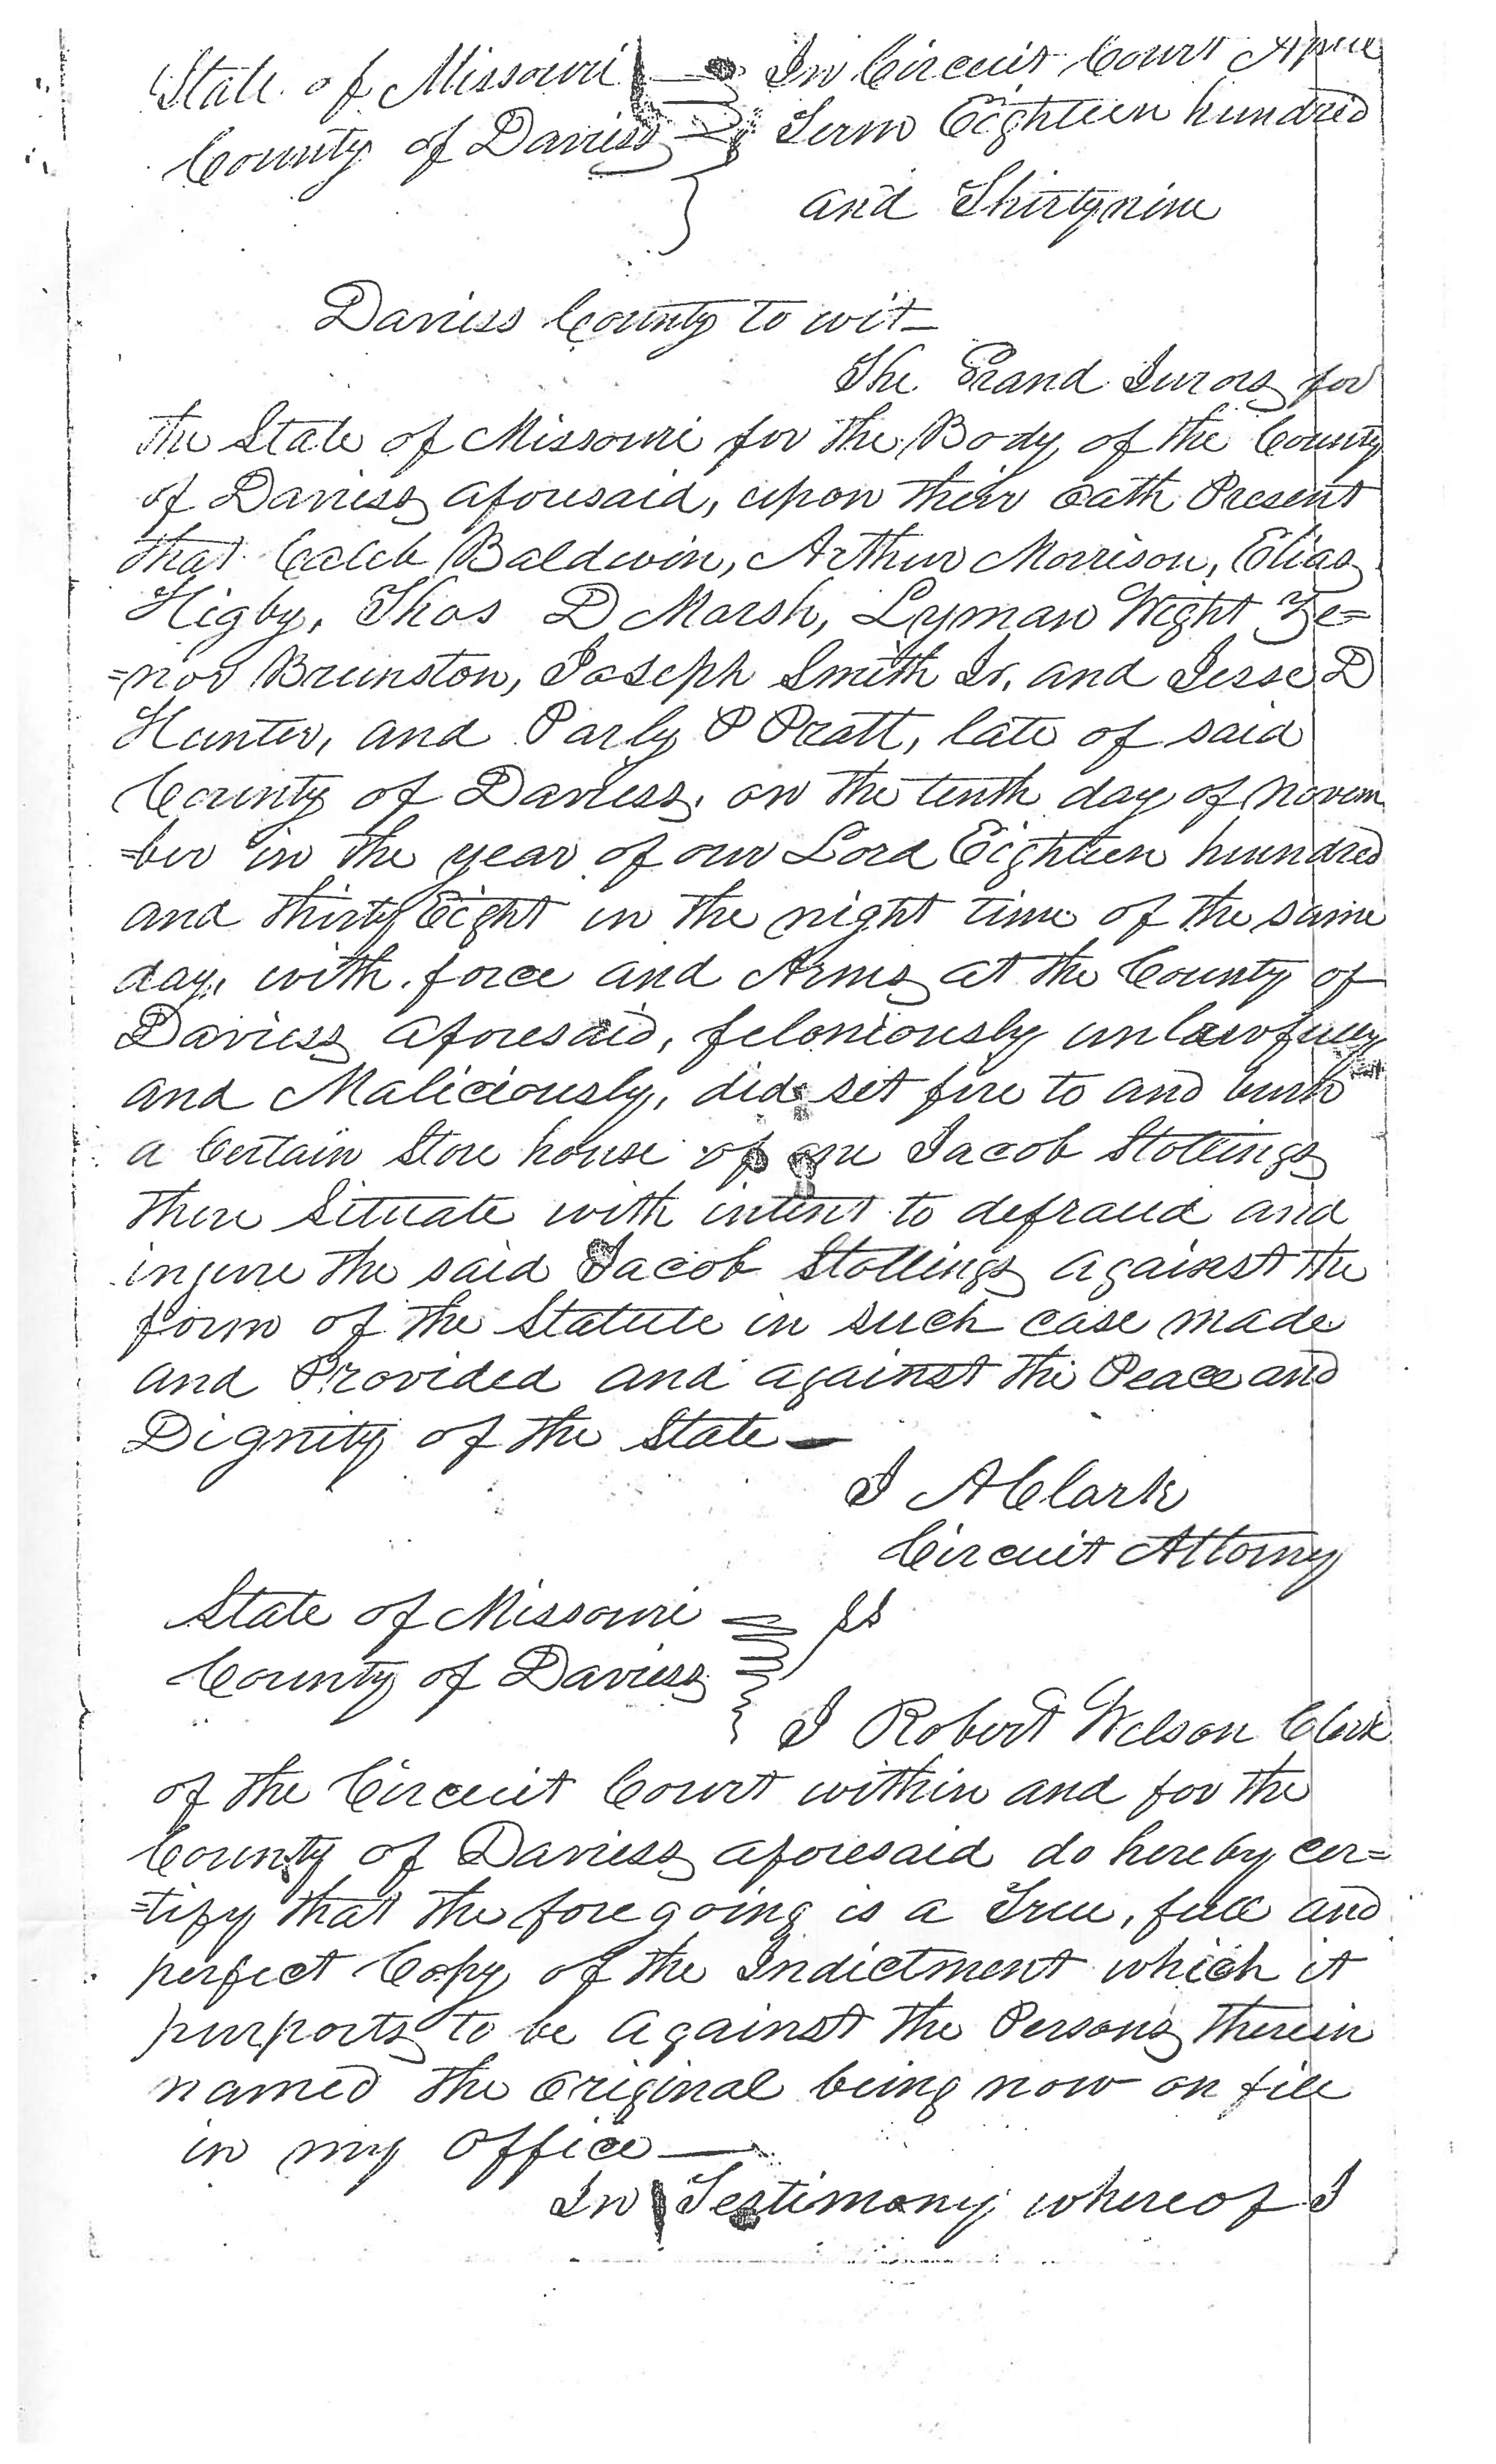 State of Missouri In Circuit Court April
County of Daviess Term Eighteen hundred
and Thirtynine
Daviess County to wit
The Grand Jurors for
the State of Missouri for the Body of the County
of Daviess aforesaid, upon their oath Present
that Caleb Baldwin, Arthur Morrison, Elias
Higby, Thos D Marsh, Lyman Wight Ze=
=nos Brunston, Joseph Smith Jr. and Jesse D
Hunter, and Parly P Pratt, late of said
County of Daviess, on the tenth day of Novem
=ber in the year of our Lord Eighteen hundred
and thirty Eight in the night time of the same
day, with force and Arms at the County of
Daviess aforesaid, feloniously unlawfully
and Maliciously, did set fire to and burn
a Certain Store house of one Jacob Stollings
there Situate with intent to defraud and
injure the said Jacob Stollings against the
form of the Statute in such case made
and Provided and against the Peace and
Dignity of the State —
J A Clark
Circuit Attorny
State of Missouri SS
County of Daviess
I Robert Wilson Clerk
of the Circuit Court within and for the
County of Daviess aforesaid do hereby cer=
=tify that the foregoing is a True, full and
perfect Copy of the Indictment which it
purports to be against the Persons therein
named the original being now on file
in my office —
In Testimony whereof I